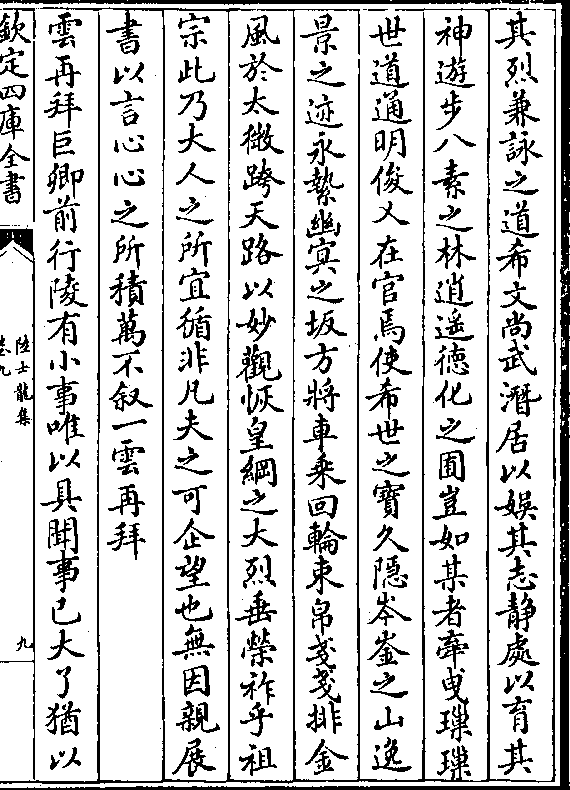 其烈兼詠之道希文尚武潛居以娯其志靜處以育其
神遊步八素之林逍遥徳化之囿豈如某者牽曵璅璅
世道通明俊乂在官焉使希世之寳久隠岺崟之山逸
景之迹永縶幽㝠之坂方將車乗回輪束帛戔戔排金
風於太微跨天路以妙觀恢皇綱之大烈垂榮祚乎祖
宗此乃大人之所宜循非凡夫之可企望也無因親展
書以言心心之所積萬不叙一雲再拜
雲再拜巨卿前行陵有小事唯以具聞事已大了猶以
欽定四庫全書
陸士龍集
卷九
九